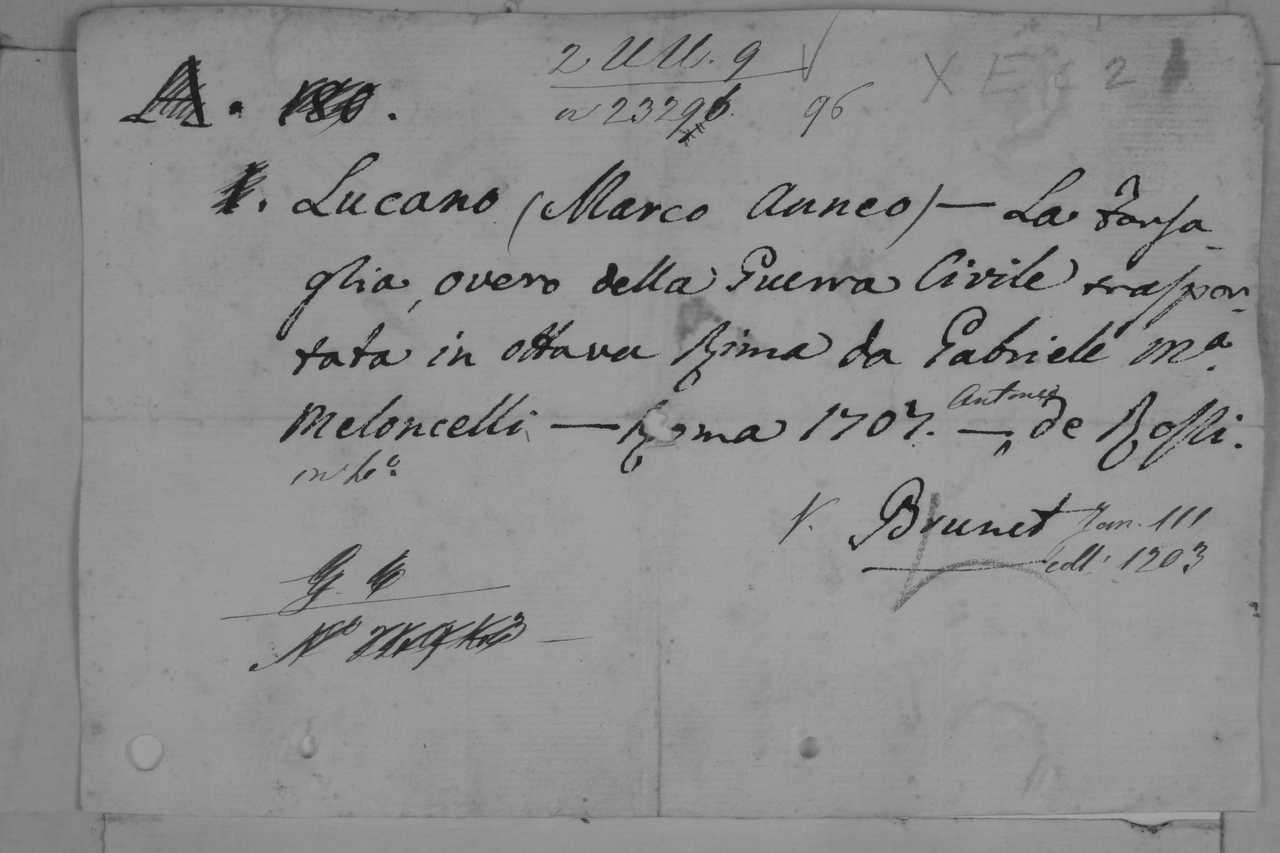 2 UU. 9
A. 180.
n 23296. 96
X E c 2
1. Lucano (Marco Anneo) — La Farsa-
glia, overo della Guerra Civile traspor-
tata in ottava Rima da Gabriele Mª.
Meloncelli — Roma 1707. — Antonio de Rossi.
in 4º.
V. Brunet Tom. III
coll. 1203
G.
Nº